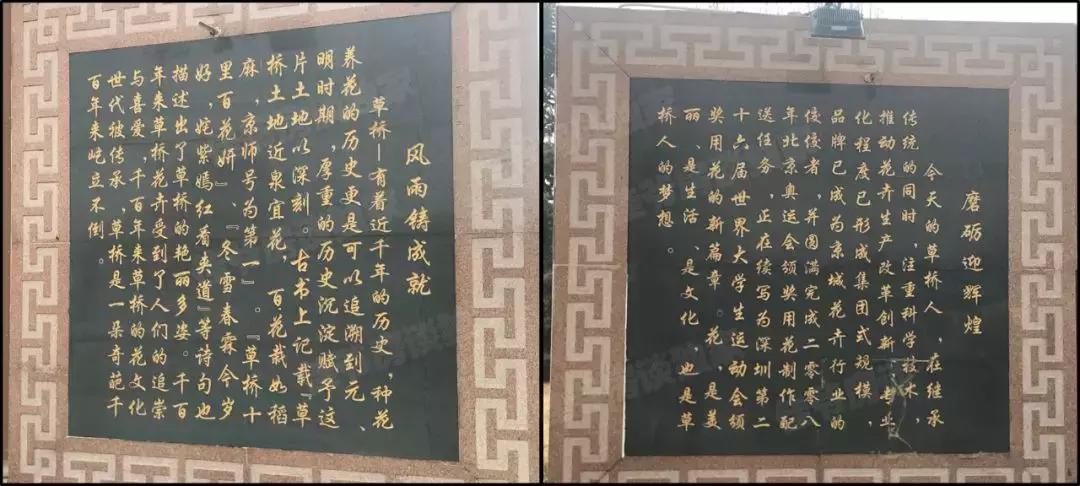 风雨铸成就
草桥—有着近千年的历史，种花
养花的历史更是可以追溯到元、
明时期，厚重的历史沉淀赋予这
片土地以深刻。古书上记载『草
桥土地近泉宜花，百花栽如稻
麻，京师号为第一』。『草桥十
里百花妍』、『冬雪春霖今岁
好，姹紫嫣红看夹道』等诗句也
描述出了草桥的艳丽多姿。千百
年来草桥花卉受到了人们的追崇
与喜爱，千百年来草桥的花文化
世代被传承，草桥是一朵奇葩千
百年来屹立不倒。
磨砺迎辉煌
今天的草桥人，在继承
传统的同时，注重科学技术，
推动花卉生产改革创新，专业
化程度已形成集团式规模，
品牌已成为京城花卉行业的
佼佼者，并圆满完成二零零八
年北京奥运会颁奖用花制作配
送任务，正在续写为深圳第二
十六届世界大学生运动会颁
奖用花的新篇章。花，是美
丽、是生活、是文化，也是草
桥人的梦想。